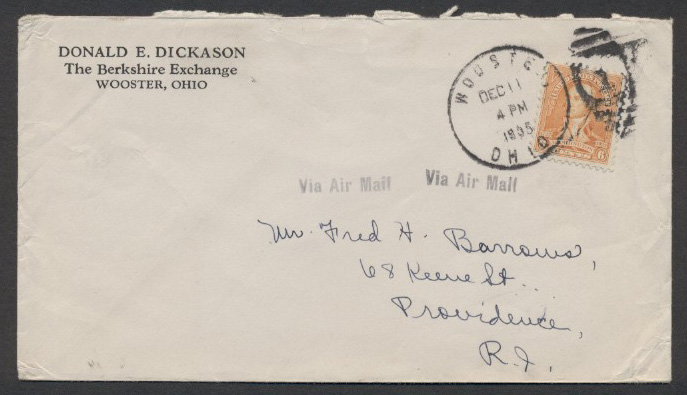 DONALD E. DICKASON
The Berkshire Exchange
WOOSTER, OHIO
WOOSTER
DEC 11
4 PM
1935
OHIO
6
Via Air Mail Via Air Mail
Mr. Fred H. Barrows,
68 Keene St.
Providence,
R.I.